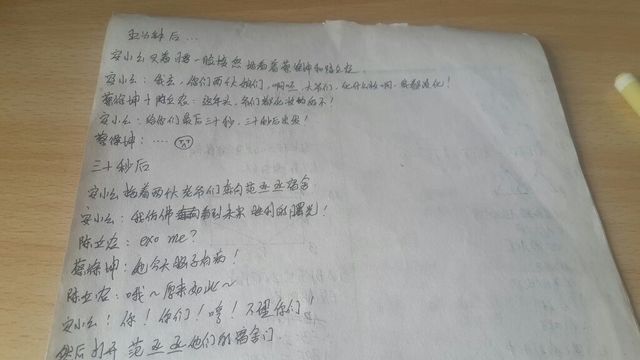 五分钟后...
安小么又看了看一脸愤然拖着着蔡徐坤和陈立农.
安小么：我去，你们两大爷们，啊呸，大爷们，化什么妆啊，我都没化！
蔡徐坤+陈立农：这年头，爷们都化妆的好不！
安小么：给你们最后三十秒，三十秒后出发！
蔡徐坤：....
三十秒后
安小么拖着两大老爷们奔向范丞丞宿舍
安小么：我仿佛看到未来胜利的曙光！
陈立农：exo me?
蔡徐坤：她今天脑子有病！
陈立农：哦～原来如此～
安小么：你！你们！哼！不理你们！
然后打开范丞丞他们的宿舍门.